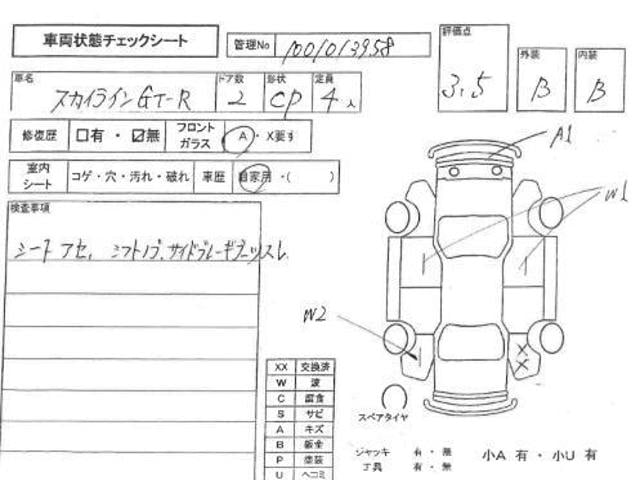 車両状態チェックシート 管理No 10010139.58 評価点 3.5 外装 B 内装 B
車名 スカイラインGT-R ドア数 2 形状 CP 定員 4人
修復歴 □有・☑無 フロントガラス A・X要す
室内シート コゲ・穴・汚れ・破れ 車歴 自家用・( )
検査事項
シートアセ、シフトノブ.サイドブレーキブーツスレ
A1
W1
W2
XX
XX 交換済
W 波
C 腐食
S サビ
A キズ
B 鈑金
P 塗装
U ヘコミ
スペアタイヤ
ジャッキ 有・無
工具 有・無
小A 有・小U 有